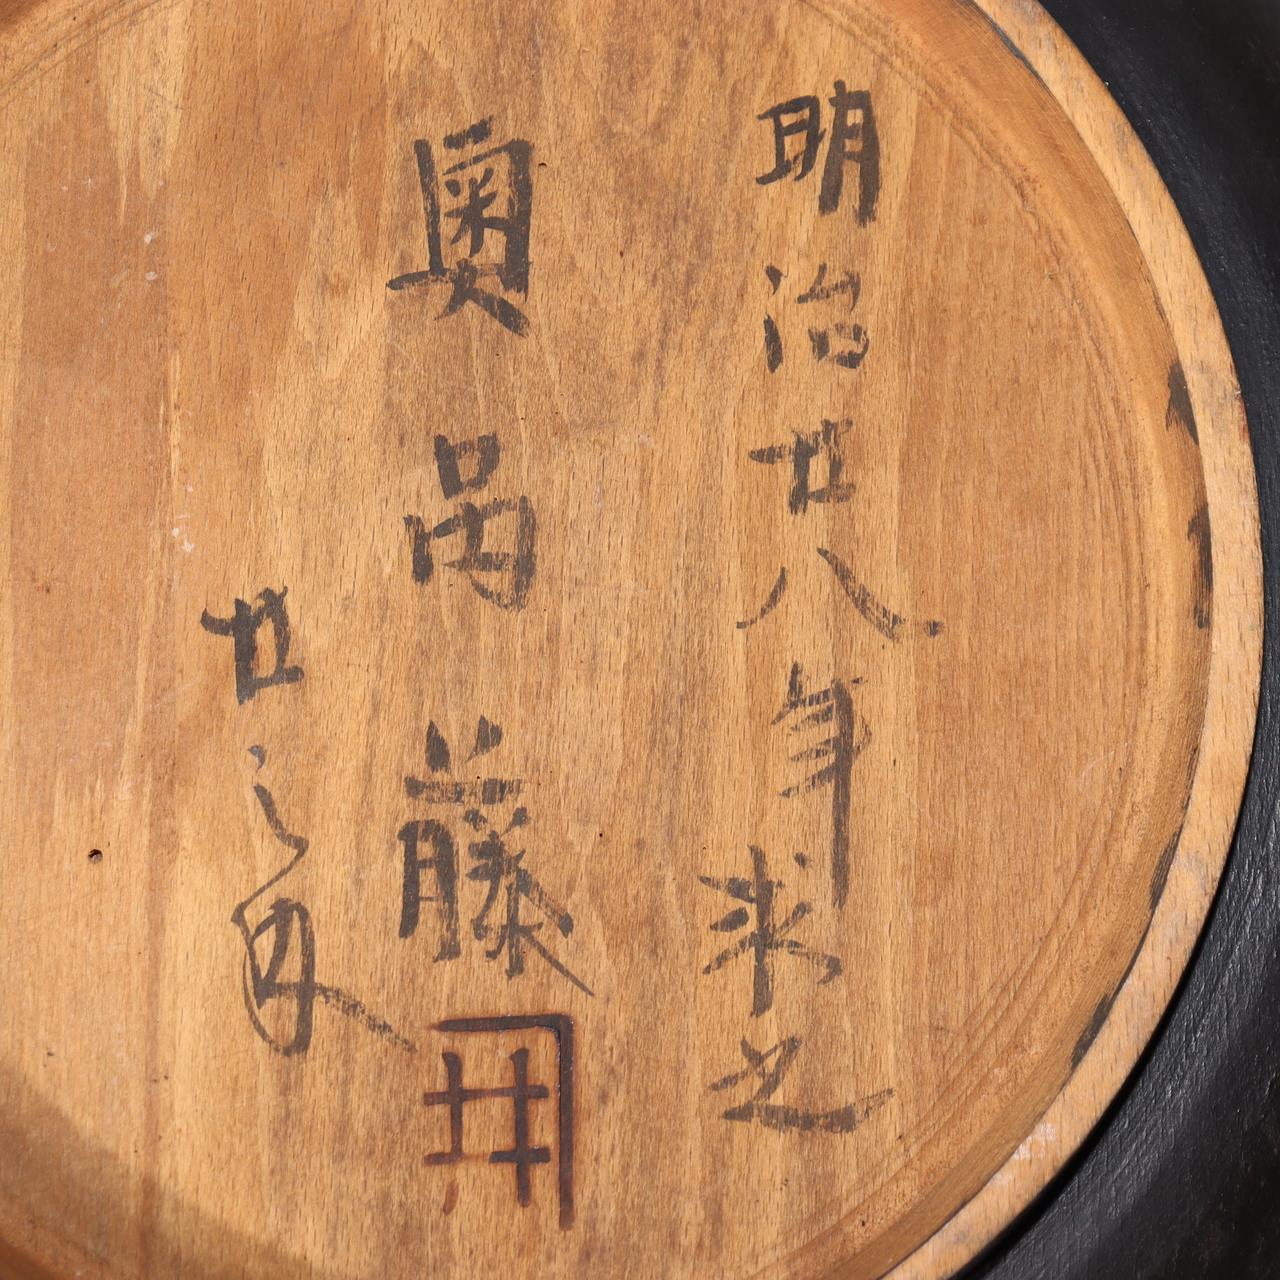 明治廿八年求之
奥呂藤
井
廿之内